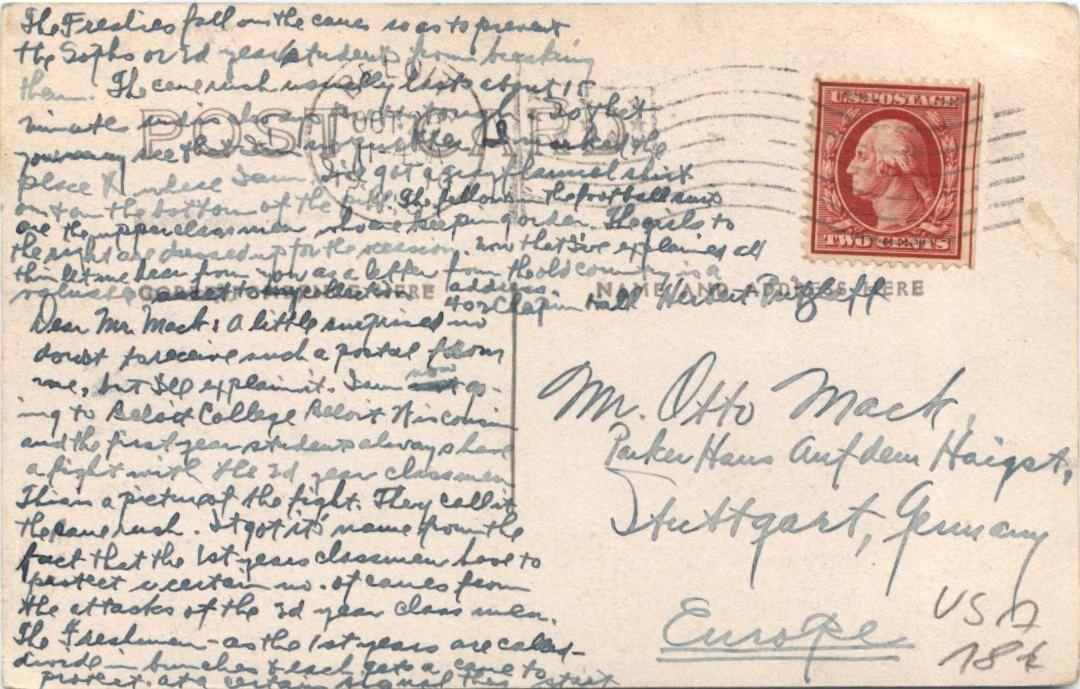 The Freshies fall on the canes so as to prevent
the Sophs or 2d year students from breaking
them. The cane rush usually lasts about 15
minutes and is always pretty rough. So that
you may see that I am no quitter I marked the
place X where I am. I've got a gray flannel shirt
on & am on the bottom of the pile. The fellows in the football suits
are the upperclassmen who are keeping order. The girls to
the right are dressed up for the occasion. Now that I've explained all
this let me hear from you as a letter from the old country is a
valuable asset to my collection. address.
402 Chapin Hall Herbert
POST CARD
OCT
U.S. POSTAGE
TWO CENTS
CORRESPONDENCE HERE
NAME AND ADDRESS HERE
Dear Mr. Mack: A little surprised no
doubt to receive such a postal from
me, but I'll explain it. I am now go-
ing to Beloit College Beloit Wisconsin
and the first year students always have
a fight with the 2d year classmen
This is a picture of the fight. They call it
the cane rush. It got it's name from the
fact that the 1st years classmen have to
protect a certain no. of canes from
the attacks of the 2d year class men.
The Freshmen - as the 1st years are called -
divide in bunches & each gets a cane to
protect. At a certain signal they start
Mr. Otto Mack,
Parker Haus Auf dem Haigst,
Stuttgart, Germany
Europe
USA
18t